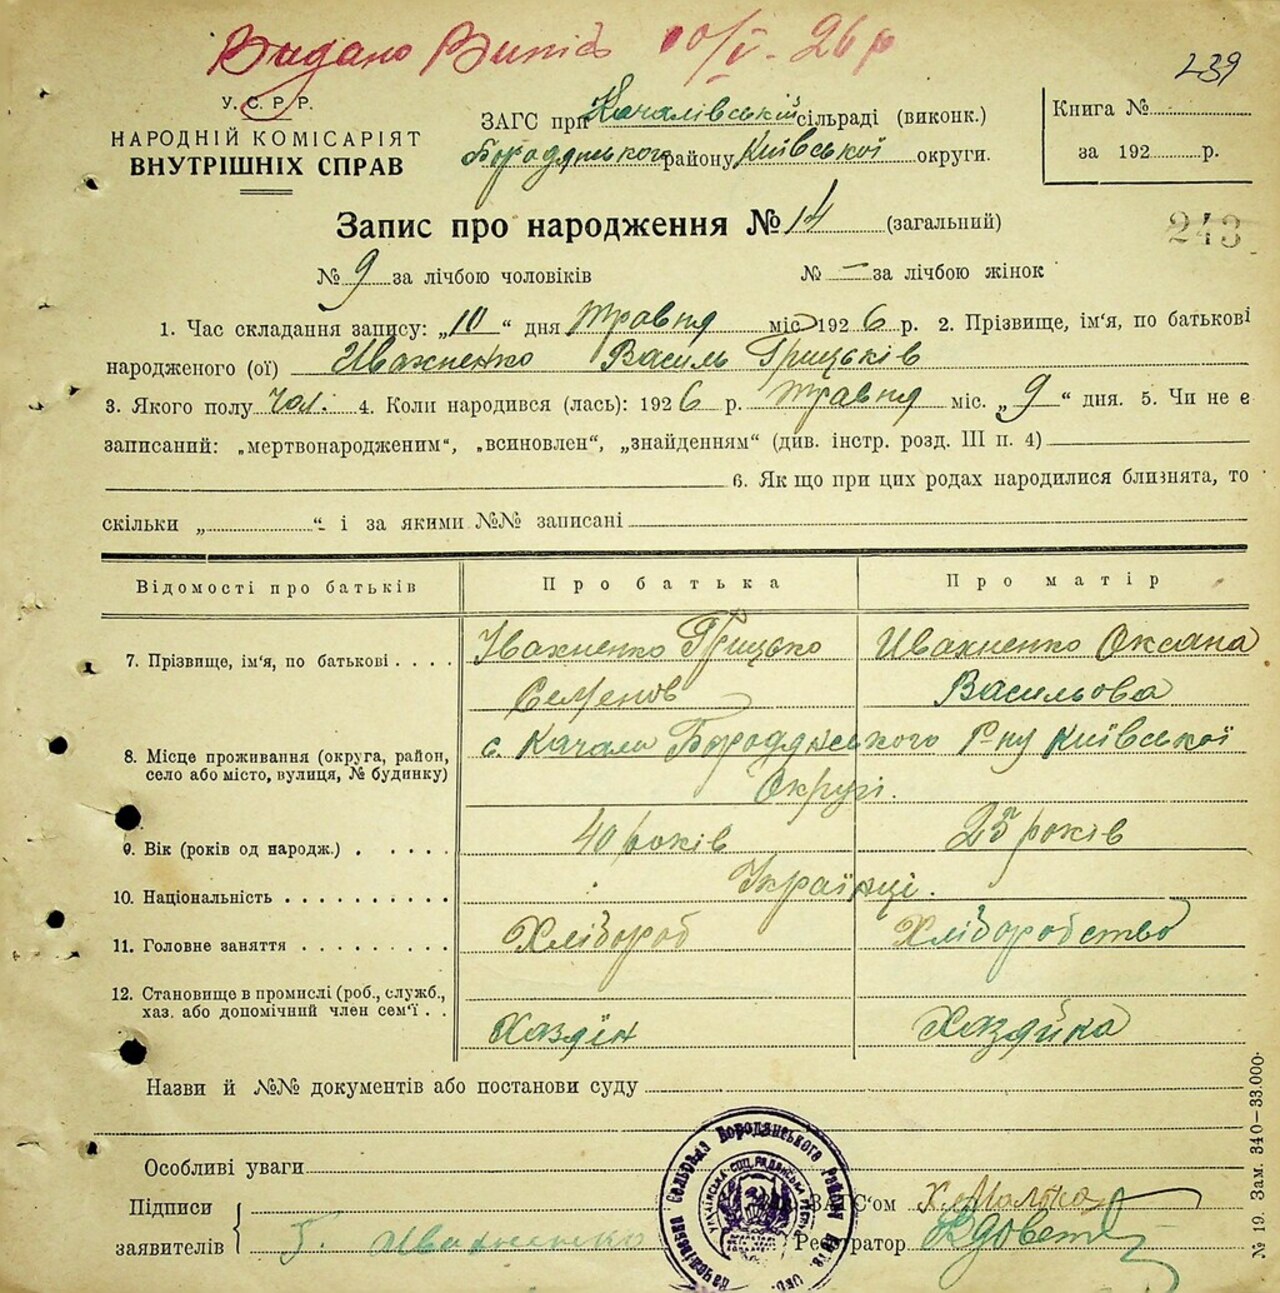 Видано Випис 10/V-26 р
239
У. С. Р. Р.
НАРОДНІЙ КОМІСАРІЯТ
ВНУТРІШНІХ СПРАВ
ЗАГС при Качалівській сільраді (виконк.)
Бородянського району Київської округи.
Книга №
за 192 р.
Запис про народження № 14 (загальний)
243
№ 9 за лічбою чоловіків № — за лічбою жінок
1. Час складання запису: „10“ дня Травня міс 1926 р. 2. Прізвище, ім'я, по батькові
народженого (ої) Ивахненко Василь Грицьків
3. Якого полу чол. 4. Коли народився (лась): 1926 р. Травня міс. „9“ дня. 5. Чи не є
записаний: „мертвонародженим“, „всиновлен“, „знайденням“ (див. інстр. розд. III п. 4)
6. Як що при цих родах народилися близнята, то
скільки „ “ і за якими №№ записані
Відомості про батьків Про батька Про матір
7. Прізвище, ім'я, по батькові . . . . Ивахненко Грицько Ивахненко Оксана
Семенов Васильова
8. Місце проживання (округа, район, с. Качали Бородянського Р-ну Київської
село або місто, вулиця, № будинку) Округі.
9. Вік (років од народж.) . . . . . 40 років 25 років
10. Національність . . . . . . . . . . Українці.
11. Головне заняття . . . . . . . . . Хлібороб Хліборобство
12. Становище в промислі (роб., служб.,
хаз. або допомічний член сем'ї . . Хазяїн Хазяйка
Назви й №№ документів або постанови суду
Особливі уваги
Підписи
заявителів Г. Ивахненко
Качалівська Сельрада Бородянського Району
С'ом
Реєстратор
№ 19. Зам. 340—33.000.